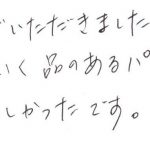 ごいただきました
いく品のあるパ
しかったです。